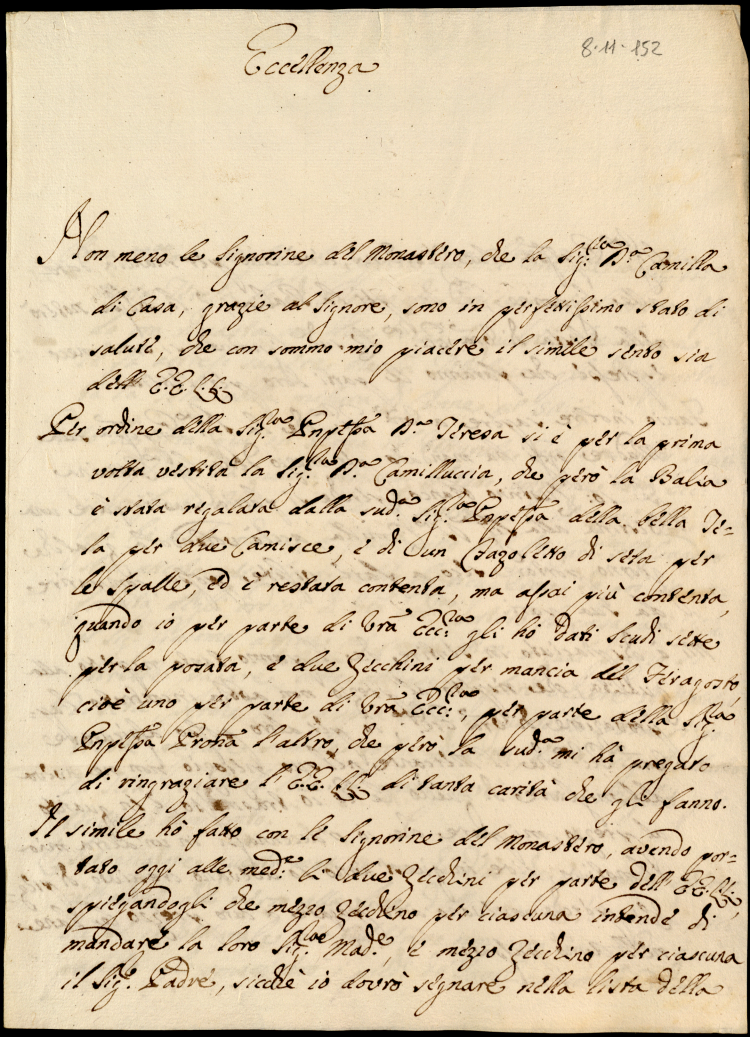 8·11·152
Eccellenza
Non meno le Signorine del Monastero, che la Sig.ra D.a Camilla
di Casa, grazie al Signore, sono in perfettissimo stato di
salute, che con sommo mio piacere il simile sento sia
dell' E.E. LL.
Per ordine della Sig.ra Pnpessa D.a Teresa si è per la prima
volta vestita la Sig.ra D.a Camilluccia, che però la Balia
è stata regalata dalla sud.a Sig.ra Pnpessa della bella Te=
la per due Camisce, e di un Fazoletto di seta per
le Spalle, ed è restata contenta, ma assai più contenta,
quando io per parte di Vrã Ecc.za gli hò dati Scudi sette
per la posata, e due Zecchini per mancia del Feragosto,
cioè uno per parte di Vrã Ecc.za, per parte della Sig.ra
Pnpessa Prona l'altro, che però la sud.a mi hà pregato
di ringraziare l'EE. LL. di tanta carità che gli fanno.
Il simile hò fatto con le Signorine del Monastero, avendo por=
tato oggi alle med.e li due Zecchini per parte dell' EE. LL.,
spiegandogli che mezzo Zecchino per ciascuna intende di
mandare la loro Sig.ra Mad.e, e mezzo Zecchino per ciascuna
il Sig.r Padre, sicchè io dovrò segnare nella lista della